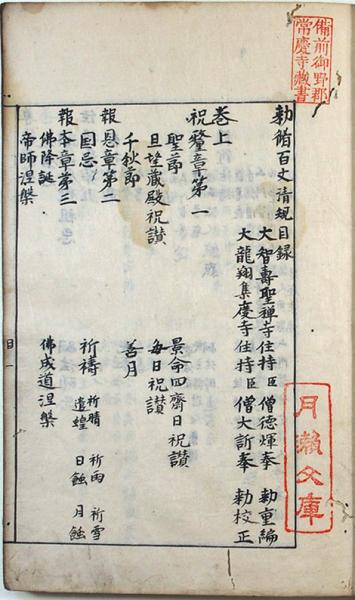 備前御野郡
常慶寺藏書
勅脩百丈清規目録
大智壽聖禅寺住持臣僧德煇奉 勅重編
大龍翔集慶寺住持臣僧大訢奉 勅校正
卷上
祝釐章第一
聖節 景命四齋日祝讃
旦望藏殿祝讃 每日祝讃
千秋節 善月
報恩章第二
国忌 祈禱 祈晴 祈雨 祈雪
遣蝗 日蝕 月蝕
報本章第三
佛降誕 佛成道涅槃
帝師涅槃
目一
月瀬文庫